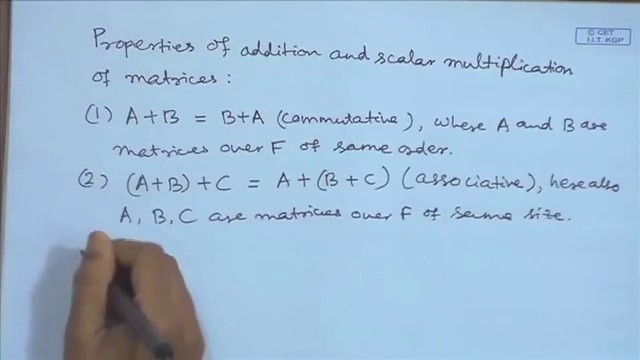 © CET
I.I.T. KGP
Properties of addition and scalar multiplication
of matrices :
(1) A+B = B+A (commutative), where A and B are
matrices over F of same order.
(2) (A+B)+C = A+(B+C) (associative), here also
A, B, C are matrices over F of same size.